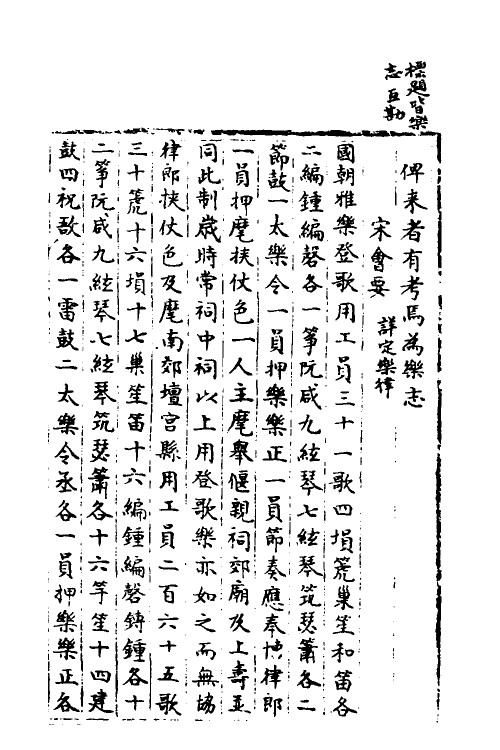 標題皆樂
志互勘
俾来者有考焉為樂志
宋會要　詳定樂律
國朝雅樂登歌用工員三十一歌四塤箎巢笙和笛各
二編鍾編磬各一箏阮咸九絃琴七絃琴筑瑟簫各二
節鼓一太樂令一員押樂樂正一員節奏應奉協律郎
一員押麾挾仗色一人主麾舉偃親祠郊廟及上壽並
同此制歲時常祠中祠以上用登歌樂亦如之而無協
律郎挾仗色及麾南郊壇宮縣用工員二百六十五歌
三十箎十六塤十七巢笙笛十六編鍾編磬鎛鍾各十
二箏阮咸九絃琴七絃琴筑瑟簫各十六竽笙十四建
鼓四柷敔各一雷鼓二太樂令丞各一員押樂樂正各